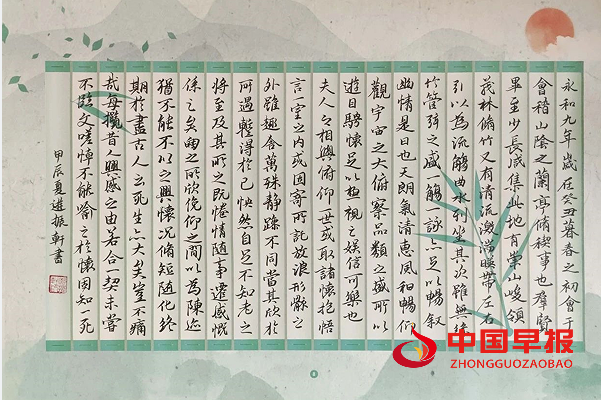 永和九年歲在癸丑暮春之初會于
會稽山陰之蘭亭脩稧事也群賢
畢至少長咸集此地有崇山峻領
茂林脩竹又有清流激湍暎帶左右
引以為流觴曲水列坐其次雖無絲
竹管弦之盛一觴一詠亦足以暢叙
幽情是日也天朗氣清惠風和暢仰
觀宇宙之大俯察品類之盛所以
遊目騁懷足以極視聽之娛信可樂也
夫人之相與俯仰一世或取諸懷抱悟
言一室之內或因寄所託放浪形骸之
外雖趣舍萬殊静躁不同當其欣於
所遇暫得於己快然自足不知老之
將至及其所之既惓情隨事遷感慨
係之矣向之所欣俛仰之間以為陳迹
猶不能不以之興懷況脩短隨化終
期於盡古人云死生亦大矣豈不痛
哉每攬昔人興感之由若合一契未嘗
不臨文嗟悼不能喻之於懷固知一死
甲辰夏進振軒書
中国早报
ZHONGGUOZAOBAO